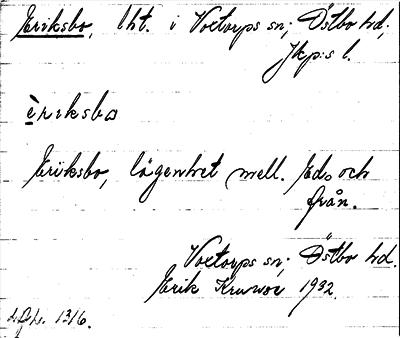 Eriksbo, lht. i Voxtorps sn; Östbo hd.
Jkp:s l.
èriksbo
Eriksbo, lägenhet mell. Ed o och
från.
Voxtorps sn; Östbo hd.
Erik 1932.
1316.